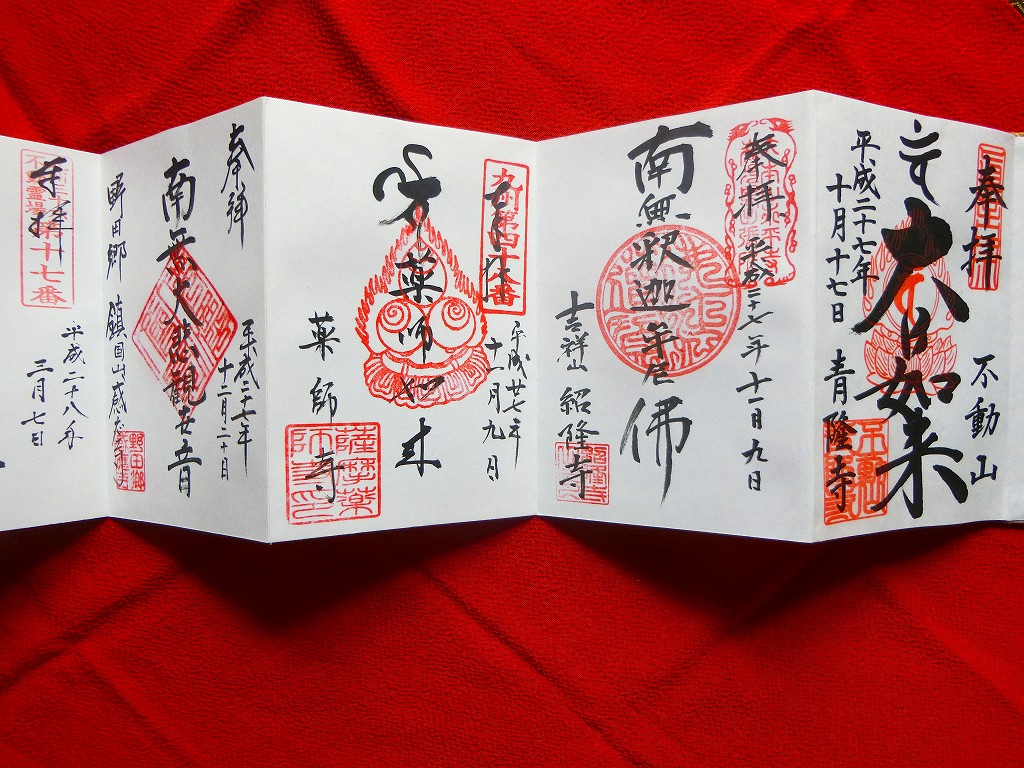 奉拝
不動山
大日如来
平成二十七年
十月十七日
青隆寺
奉拝
平成二十七年十一月九日
南無釈迦牟尼佛
吉祥山
紹隆寺
平成廿七年
十一月九日
薬師如来
薬師寺
奉拝
平成二十七年
十二月二十日
南無大悲観世音
野田郷
鎮国山感応寺
奉拝
第十七番
平成二十八年
三月七日